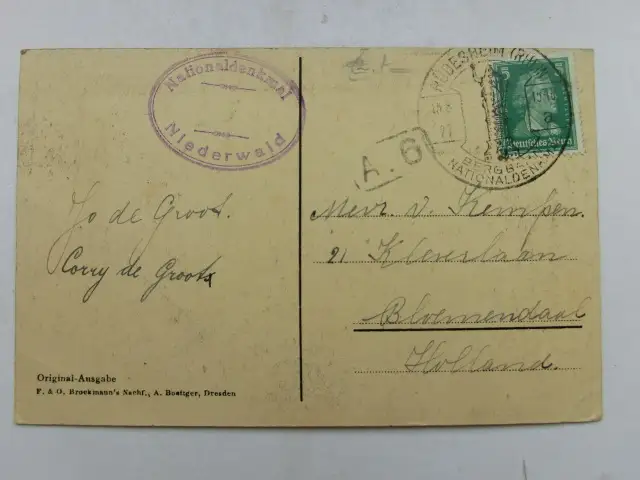 Nationaldenkmal
Niederwald
RÜDESHEIM (RHEIN)
BURGEN
NATIONALDENKMAL
5
Deutsches Reich
A. 6
Jo de Groot.
Corry de Groot
Mevr. v. Kempen.
21 Kleverlaan
Bloemendaal
Holland.
Original-Ausgabe
F. & O. Brockmann's Nachf., A. Boettger, Dresden